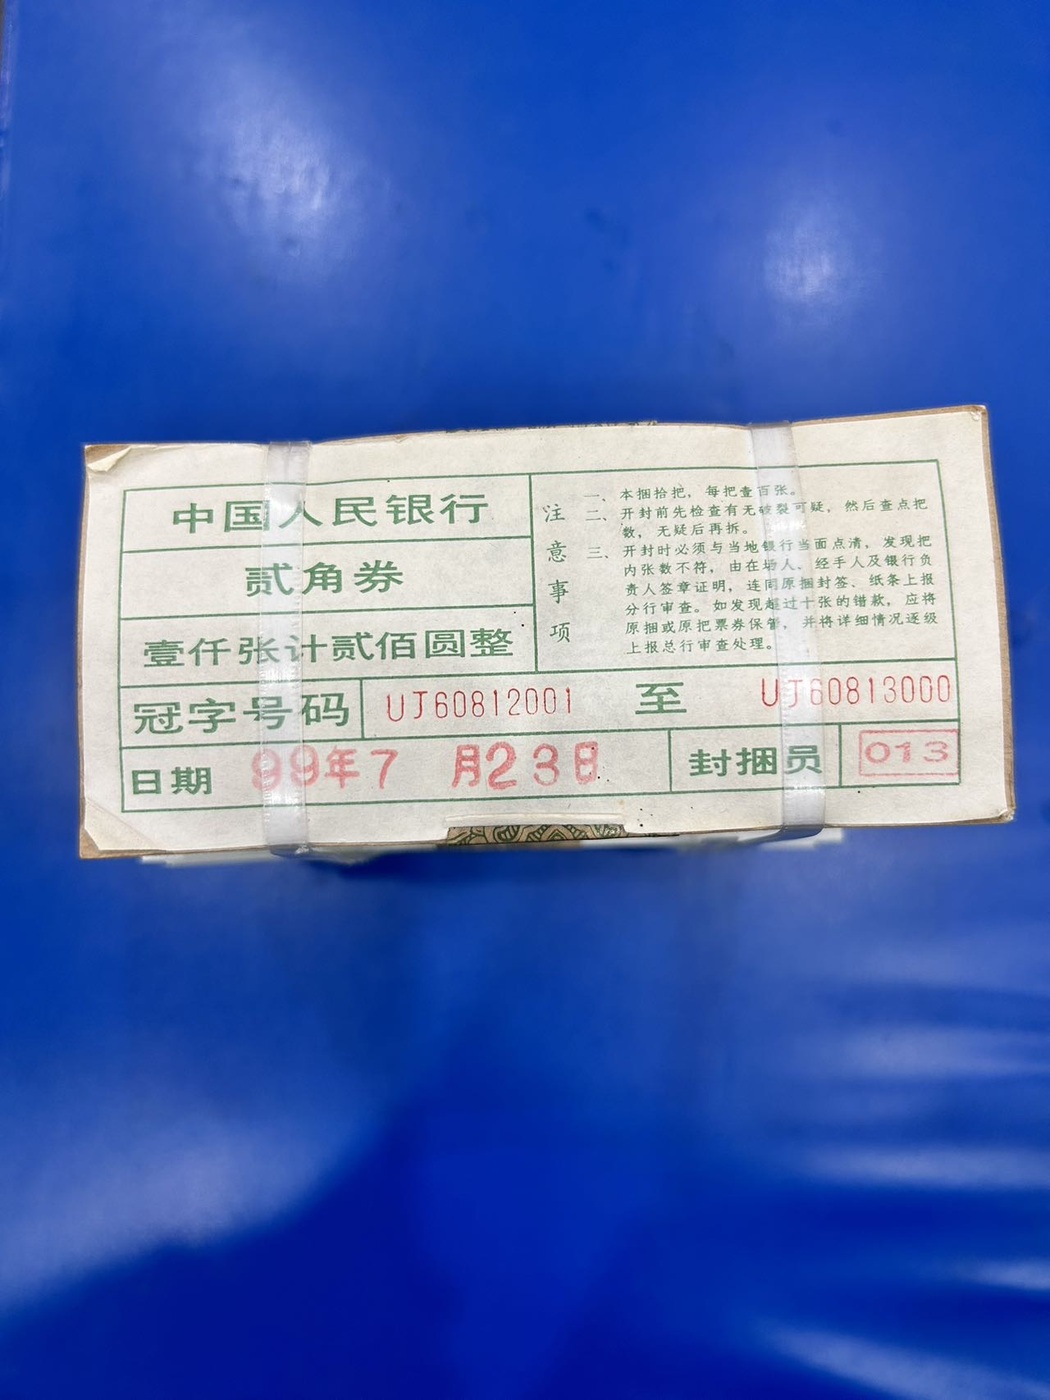 中国人民银行
贰角券
壹仟张计贰佰圆整
注意事项
一、本捆拾把，每把壹百张。
二、开封前先检查有无破裂可疑，然后查点把
数，无疑后再拆。
三、开封时必须与当地银行当面点清，发现把
内张数不符，由在场人、经手人及银行负
责人签章证明，连同原捆封签、纸条上报
分行审查。如发现超过十张的错款，应将
原捆或原把票券保管，并将详细情况逐级
上报总行审查处理。
冠字号码 UJ60812001 至 UJ60813000
日期 99年7月23日 封捆员 013